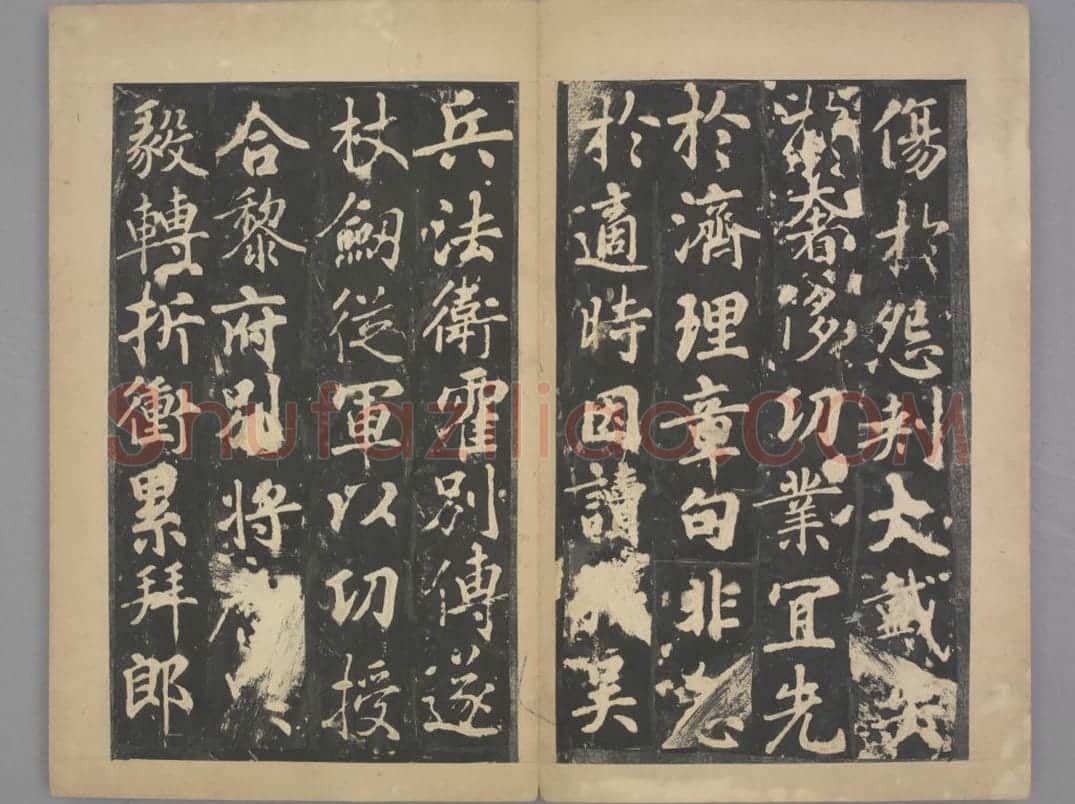 傷於怨刺大戴失
奢侈功業冝先
於濟理章句非急
於適時因讀吴
兵法衛霍別傳遂
杖劒從軍以功授
合黎府別將
毅轉折衝累拜郎
Shufaziliao.COM